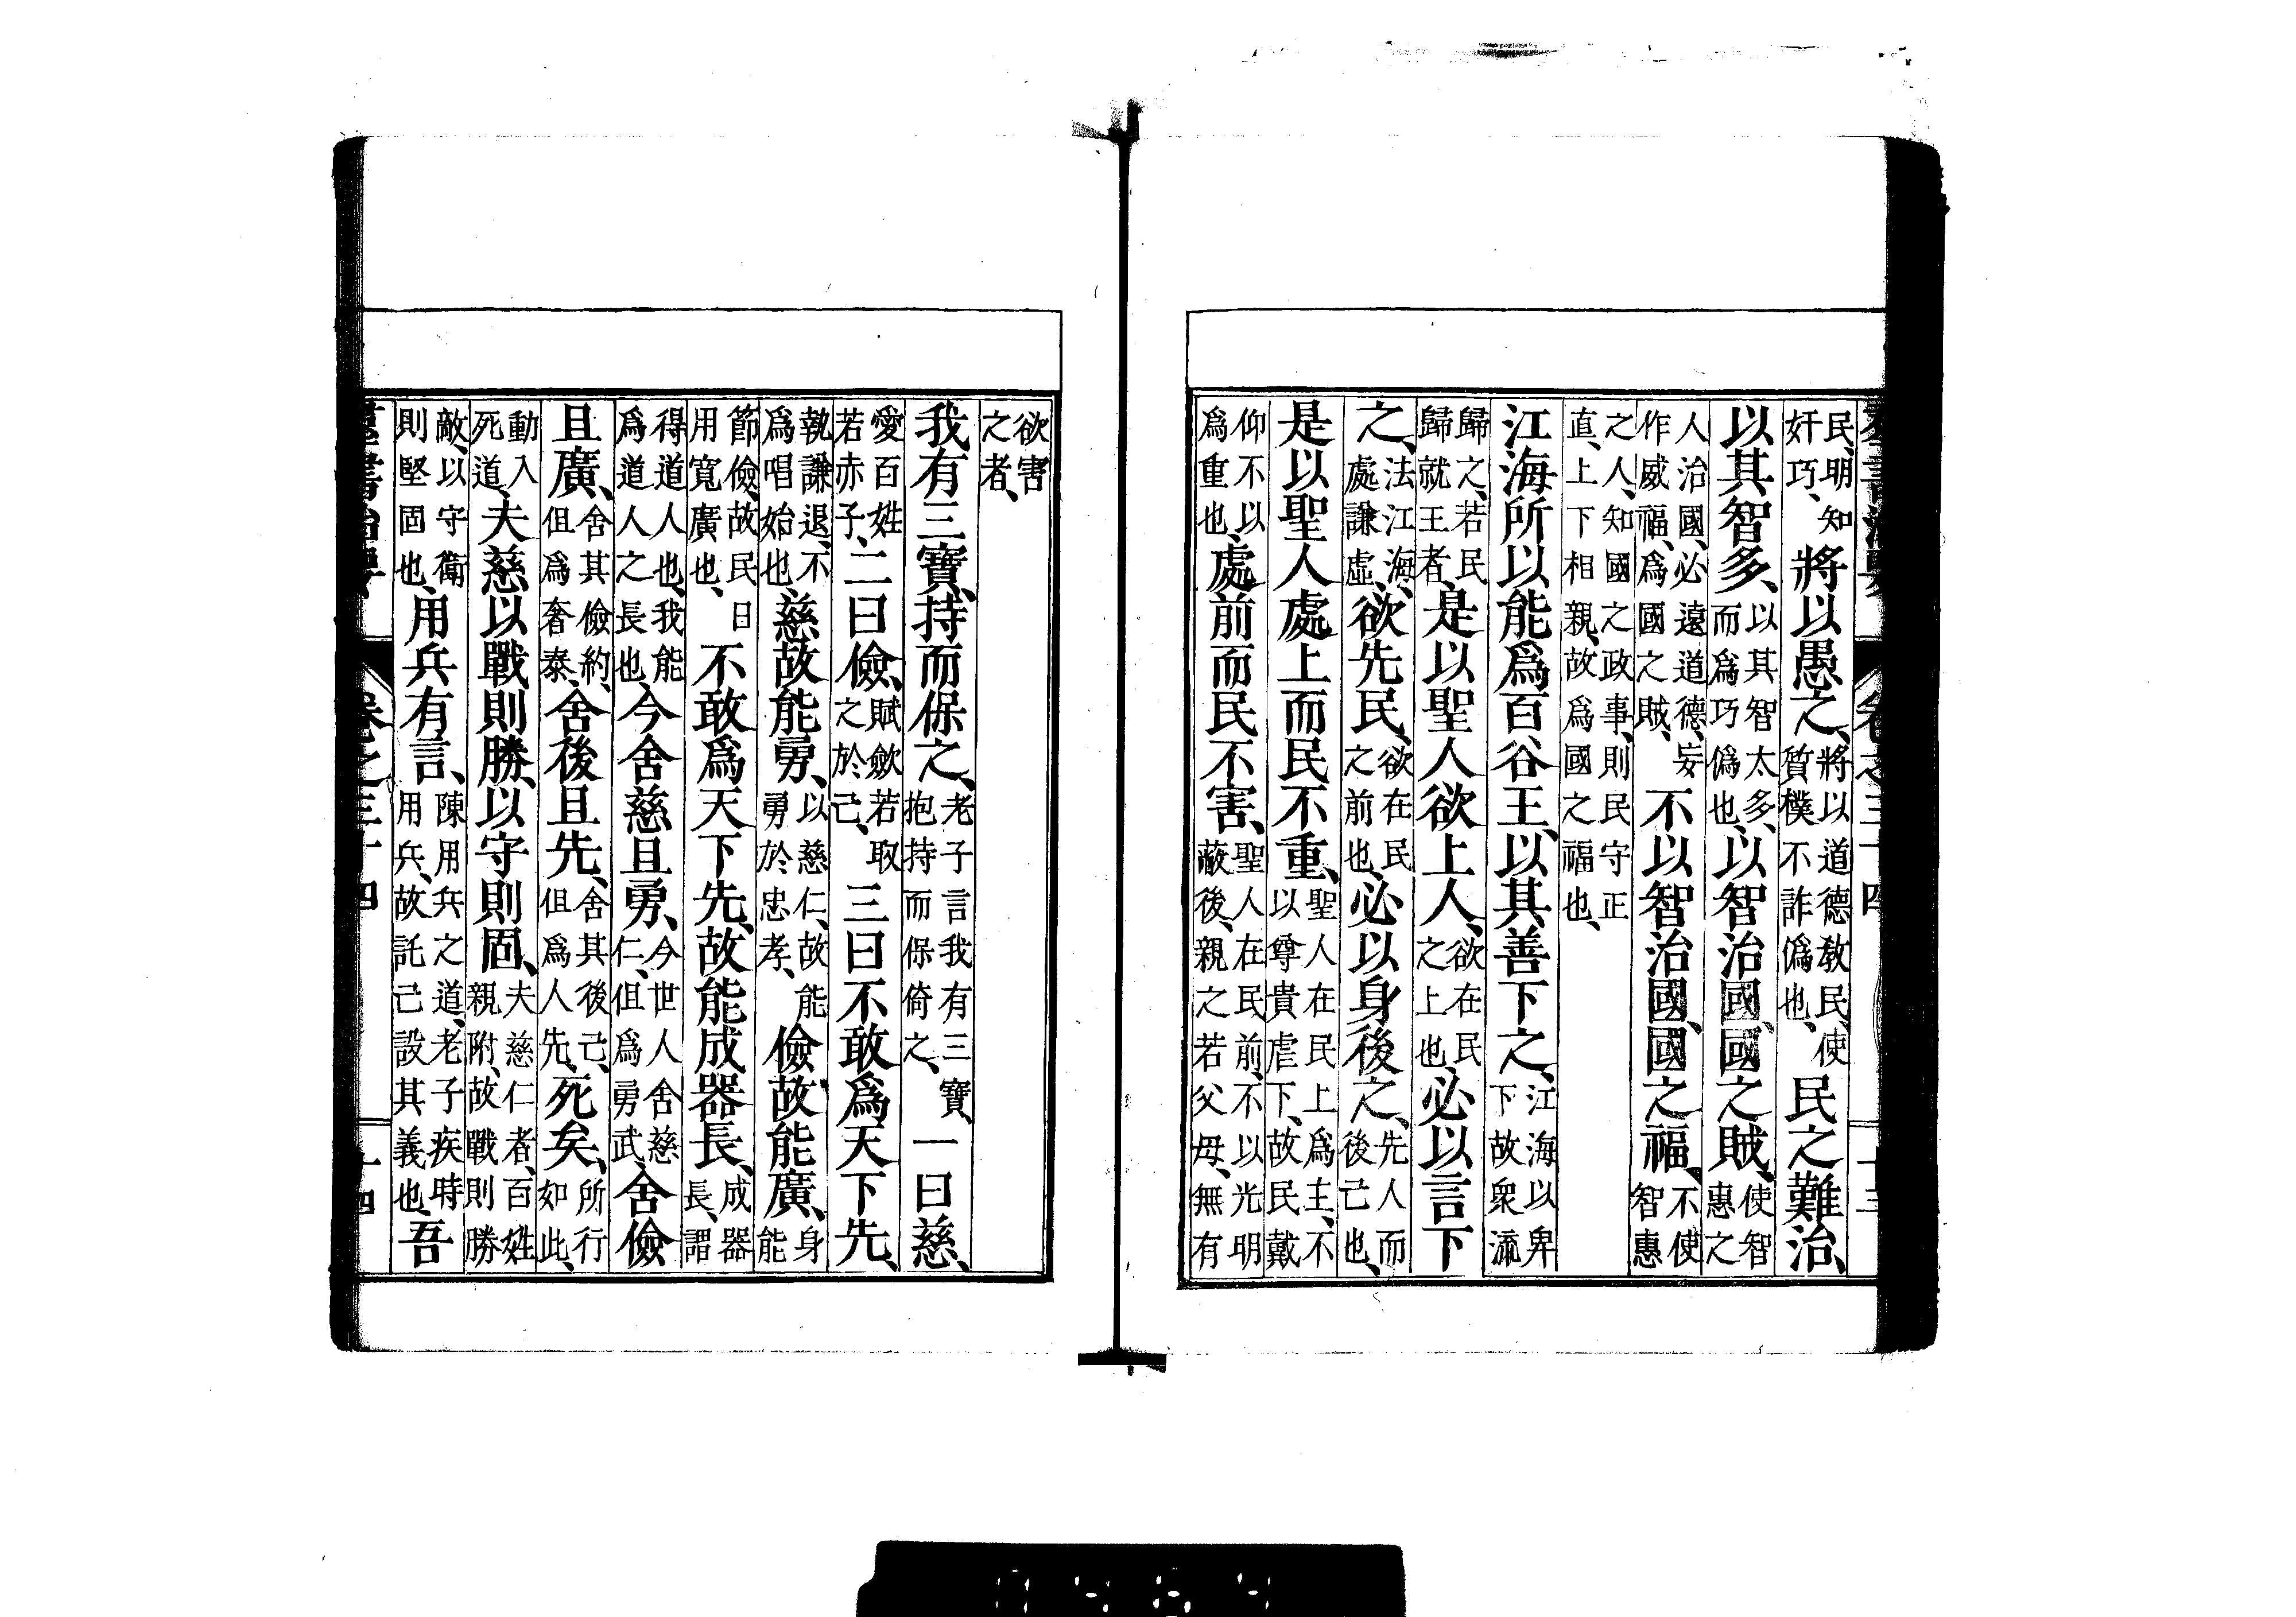 羣書治要 卷之三十四 十三
民、明知奸巧、將以愚之、將以道德教民、使質樸不詐僞也、民之難治、
以其智多、以其智太多、而爲巧僞也、以智治國、國之賊、使智惠之
人治國、必遠道德、妄作威福、爲國之賊、不以智治國、國之福、不使智惠
之人、知國之政事、則民守正直、上下相親、故爲國之福也、
江海所以能爲百谷王、以其善下之、江海以卑下故衆流
歸之、若民歸就王者、是以聖人欲上人、欲在民之上也、必以言下
之、法江海、處謙虛、欲先民、欲在民之前也、必以身後之、先人而後己也、
是以聖人處上而民不重、聖人在民上爲主、不以尊貴虐下、故民戴
仰不以爲重也、處前而民不害、聖人在民前、不以光明蔽後、親之若父母、無有
欲害之者、
我有三寶、持而保之、老子言我有三寶、抱持而保倚之、一曰慈、
愛百姓若赤子、二曰儉、賦歛若取之於己、三曰不敢爲天下先、
執謙退、不爲唱始也、慈故能勇、以慈仁、故能勇於忠孝、儉故能廣、身能
節儉、故民日用寬廣也、不敢爲天下先、故能成器長、成器長、謂
得道人也、我能爲道人之長也、今舍慈且勇、今世人舍慈仁、但爲勇武、舍儉
且廣、舍其儉約、但爲奢泰、舍後且先、舍其後己、但爲人先、死矣、所行如此、
動入死道、夫慈以戰則勝、以守則固、夫慈仁者、百姓親附、故戰則勝
敵、以守衛則堅固也、用兵有言、陳用兵之道、老子疾時用兵、故託己設其義也、吾
羣書治要 卷之三十四 十四